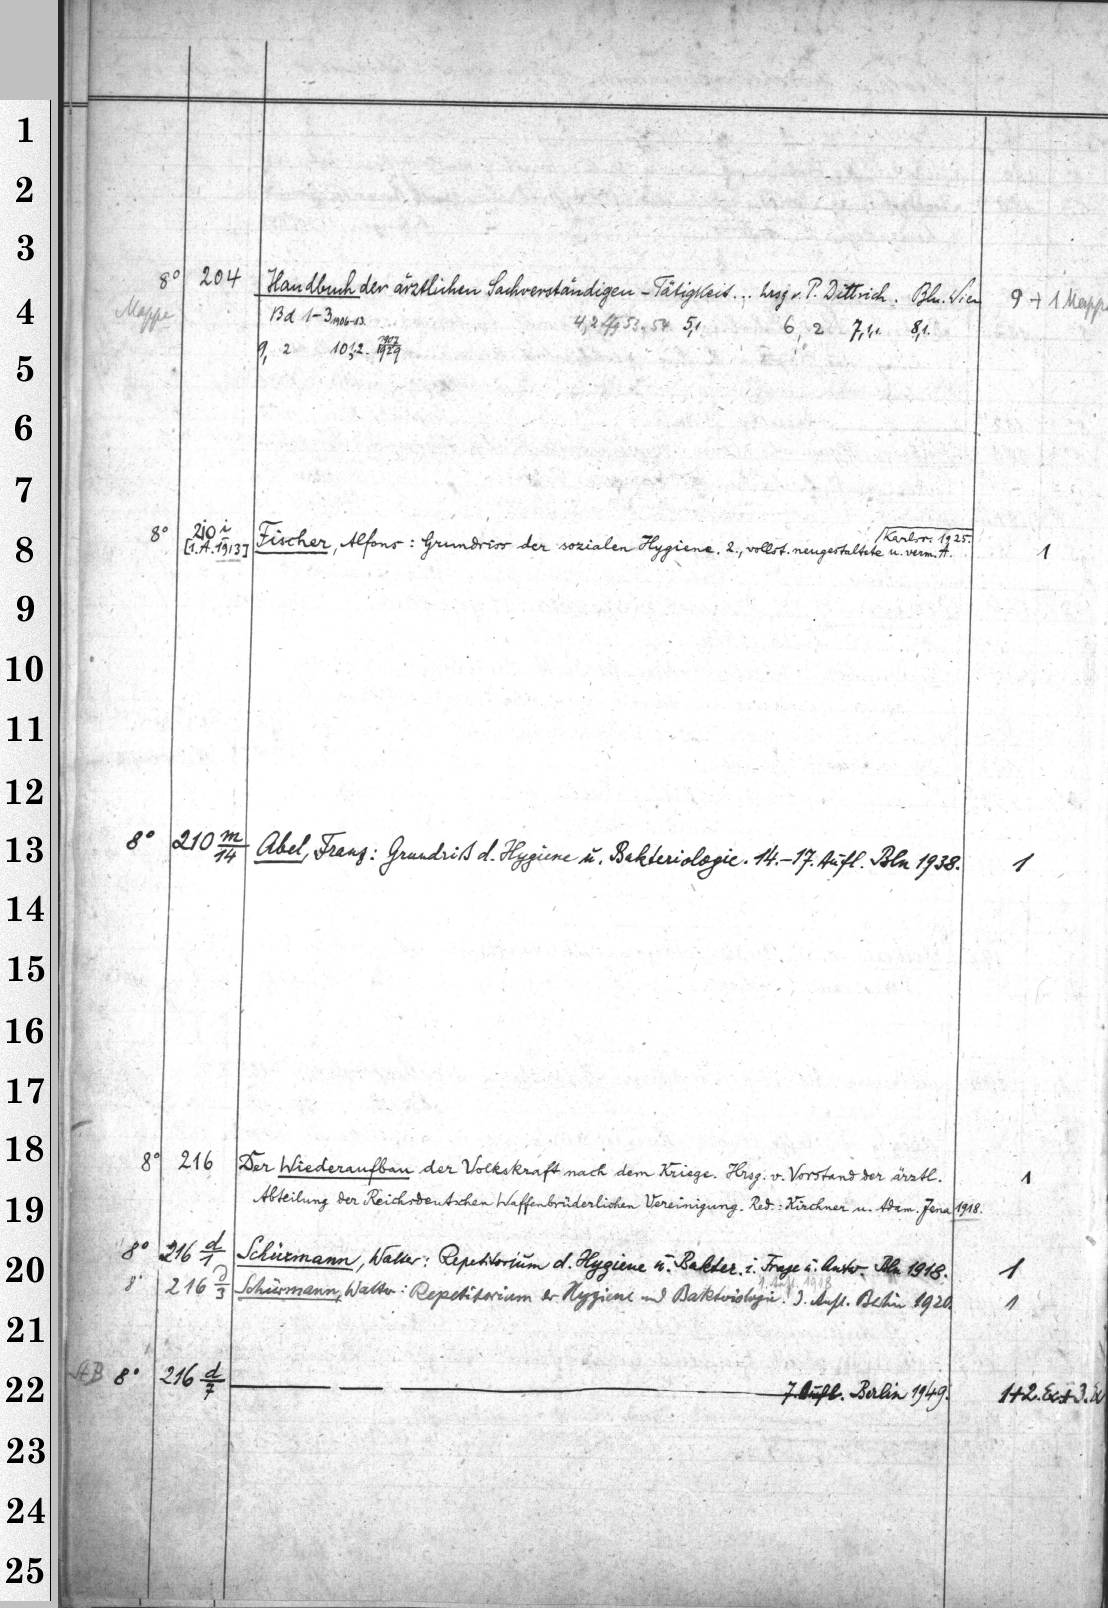 1
2
3
8° 204 Handbuch der ärztlichen Sachverständigen-Tätigkeit... hrsg v. P. Dittrich. Bln. Wien 9 + 1 Mappe
4
Mappe Bd 1-3 1906-13. 4,2 53-54 5,1 6, 2 7,1. 8,1.
9, 2 10,2. 1929
5
6
7
8° 210 i Karlsr. 1925.
8
[1.A. 1913] Fischer, Alfons: Grundriss der sozialen Hygiene. 2., vollst. neugestaltete u. verm. A. 1
9
10
11
12
8° 210 m/14 Abel, Franz: Grundriß d. Hygiene u. Bakteriologie. 14.-17. Aufl. Bln 1938. 1
13
14
15
16
17
18
8° 216 Der Wiederaufbau der Volkskraft nach dem Kriege. Hrsg. v. Vorstand der ärztl. 1
19
Abteilung der Reichsdeutschen Waffenbrüderlichen Vereinigung. Red.: Kirchner u. Adam. Jena 1918.
8° 216 d/1 Schürmann, Walter: Repetitorium d. Hygiene u. Bakter. i. Frage u. Antw. Bln 1918. 1
20
1. Aufl. 1918
8° 216 d/3 Schürmann, Walter: Repetitorium der Hygiene und Bakteriologie. 3. Aufl. Berlin 1920. 1
21
StB 8° 216 d/7 — — — 7. Aufl. Berlin 1949. 1+2. Ex+3. Ex
22
23
24
25